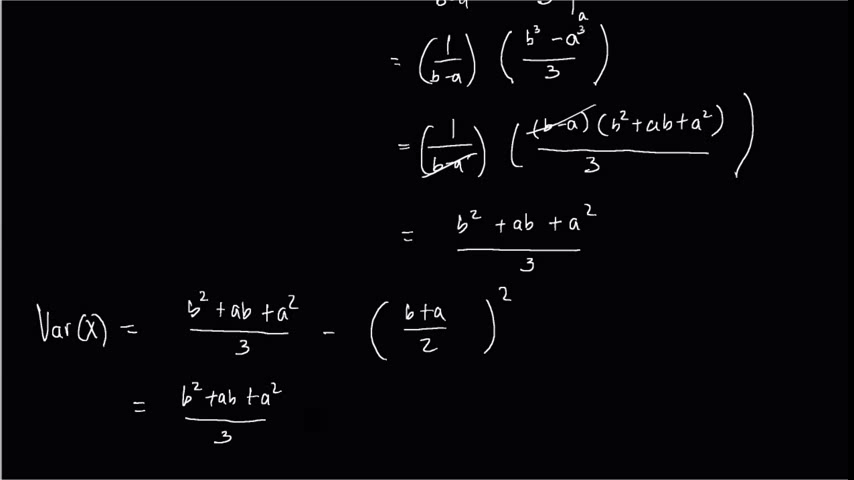 b-a 3 |a
= (1/(b-a)) ((b³ - a³)/3)
= (1/(b-a)) (((b-a)(b² + ab + a²))/3)
= (b² + ab + a²)/3
Var(X) = (b² + ab + a²)/3 - ((b+a)/2)²
= (b² + ab + a²)/3